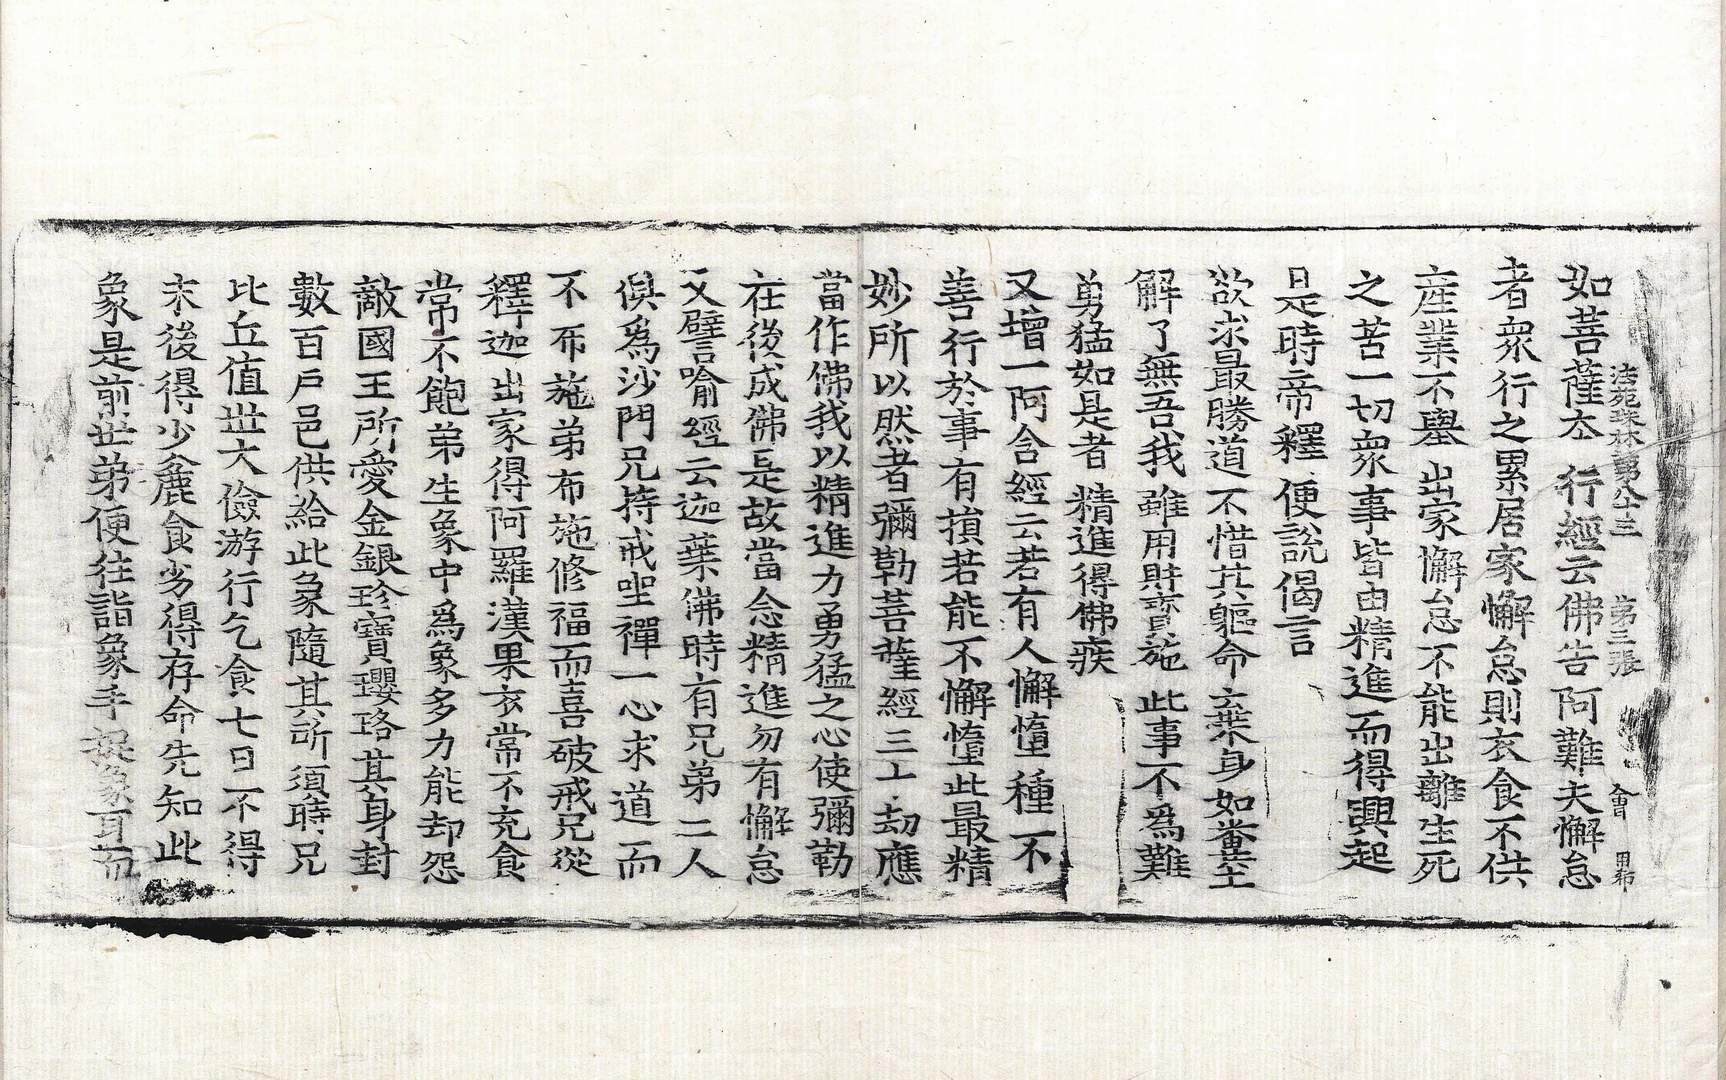 法苑珠林第八十三 第三張 會
如菩薩本行經云佛告阿難夫懈怠
者衆行之累居家懈怠則衣食不供
産業不舉出家懈怠不能出離生死
之苦一切衆事皆由精進而得興起
是時帝釋便說偈言
欲求最勝道 不惜其軀命 棄身如糞土
解了無吾我 雖用財寶施 此事不爲難
勇猛如是者 精進得佛疾
又增一阿含經云若有人懈惰種不
善行於事有損若能不懈惰此最精
妙所以然者彌勒菩薩經三十劫應
當作佛我以精進力勇猛之心使彌勒
在後成佛是故當念精進勿有懈怠
又譬喻經云迦葉佛時有兄弟二人
俱爲沙門兄持戒坐禪一心求道而
不布施弟布施修福而喜破戒兄從
釋迦出家得阿羅漢果衣常不充食
常不飽弟生象中爲象多力能却怨
敵國王所愛金銀珍寶瓔珞其身封
數百戶邑供給此象隨其所須時兄
比丘值世大儉游行乞食七日不得
末後得少麁食劣得存命先知此
象是前世弟便往詣象手捉象耳而